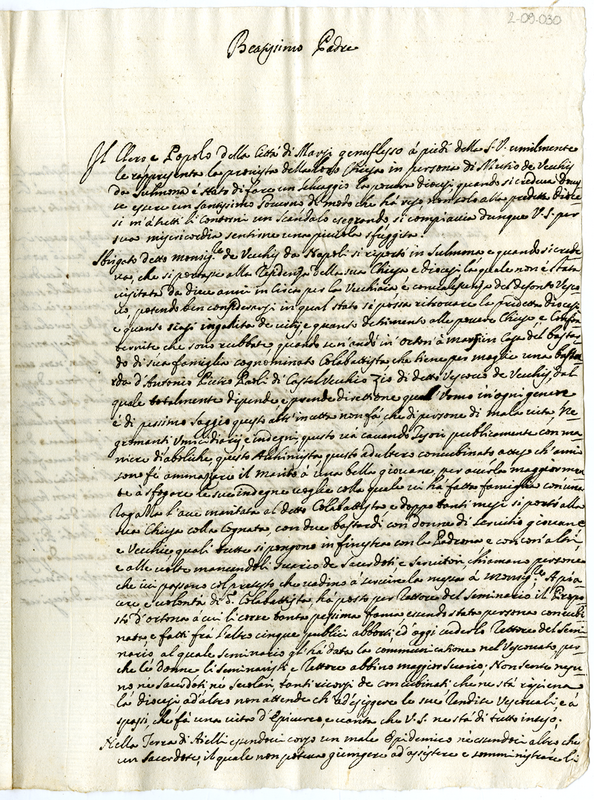 2-09-030
Beatissimo Padre
Il Clero e Popolo della Città di Marsi genuflesso à piedi della S. V. umilmente
le rappresenta la provista della loro Chiesa in persona di Mutio de Vecchij
da Sulmona è stato di fare un selvaggio la povera diocesi quando si credeva
essere un santissimo Governo di modo che hà reso non solo alla predetta diocesi
si m'à tutti li contorni un scandalo esegrando si compiaccia dunque V. S. per
sua misericordia sentirne una piccola sfuggita.
Sbrigato detto Monsig.re de Vecchij da Napoli si riportò in Sulmona e quando si crede
va, che si portasse alla Residenza della sua Chiesa e diocesi la quale non è stata
visitata da dieci anni in circa per la Vecchiaia e del defonto Vesco
vo potendo ben considerarsi in qual stato si possa ritrovare la predetta diocesi
e quanto siasi ingolfata de vitij e quanto detrimento alle povere Chiese e Confra
ternite che sono rubbate quando se n'andò in Ortona à Marsi in Casa del bastar
do di sua famiglia cognominato Colabattista che tiene per moglie una bastar
da d'Antonio Pietro Paoli di Castel Vecchio Zio di detto Vescovo de Vecchij, dal
quale totalmente dipende e prende direttione qual Uomo in ogni genere
è di pessimo saggio questo altr'incetta non fà, che di persone di mala vita, Ne
gromanti Omicidiarij e indegni, questo và cavando Tesori publicamente con ma
niere diaboliche, questo Alchimista questo adultero concubinato acteso ch'ami
sone fè ammazzare il marito à una bella giovane, per averla maggiorme
te à sfogare le sue indegne voglie colla quale vi hà fatto famiglia
l'ave maritata al detto Colabattista e doppo tanti mesi si portò alla
sua Chiesa colla Cognata, con due bastardi con donne di servitio giovane
e Vecchie quali tutte si pongono in finestra con la Padrona e
e alle volte mancandoli Chierico de Sacerdoti e Servitori chiamano persone
che vi passono col pretesto che vadino à servire la messa à Monsig.re A pia
cere e volontà di d. Colabattista, hà posto per Rettore del Seminario il Prepo
sto d'Ortona à cui li corre tanta pessima fama essendo stata persona concubi
nato e fatti frà l'altro cinque publici abborti ed'oggi vederlo Rettore del Semi
nario al quale Seminario gl'hà dato la communicatione nel Vescovato, per
che le donne li Seminaristi e Rettore abbino maggior Sicurio. Non sente nessu
no ne Sacerdoti ne Secolari, tanti ricorsi de concubinati che ne stà ripiena
la diocesi ad'altro non attende ch'ad'esiggere le sue Rendite Vescovali, e à
spassi, che fà una vita d'Epicuro e vanta che V. S. ne stà di tutto inteso.
Nella Terra di Aielli essendovi corso un male Epidemico nè essendovi altro che
un Sacerdote, il quale non poteva giungere ad'assistere e somministrare li